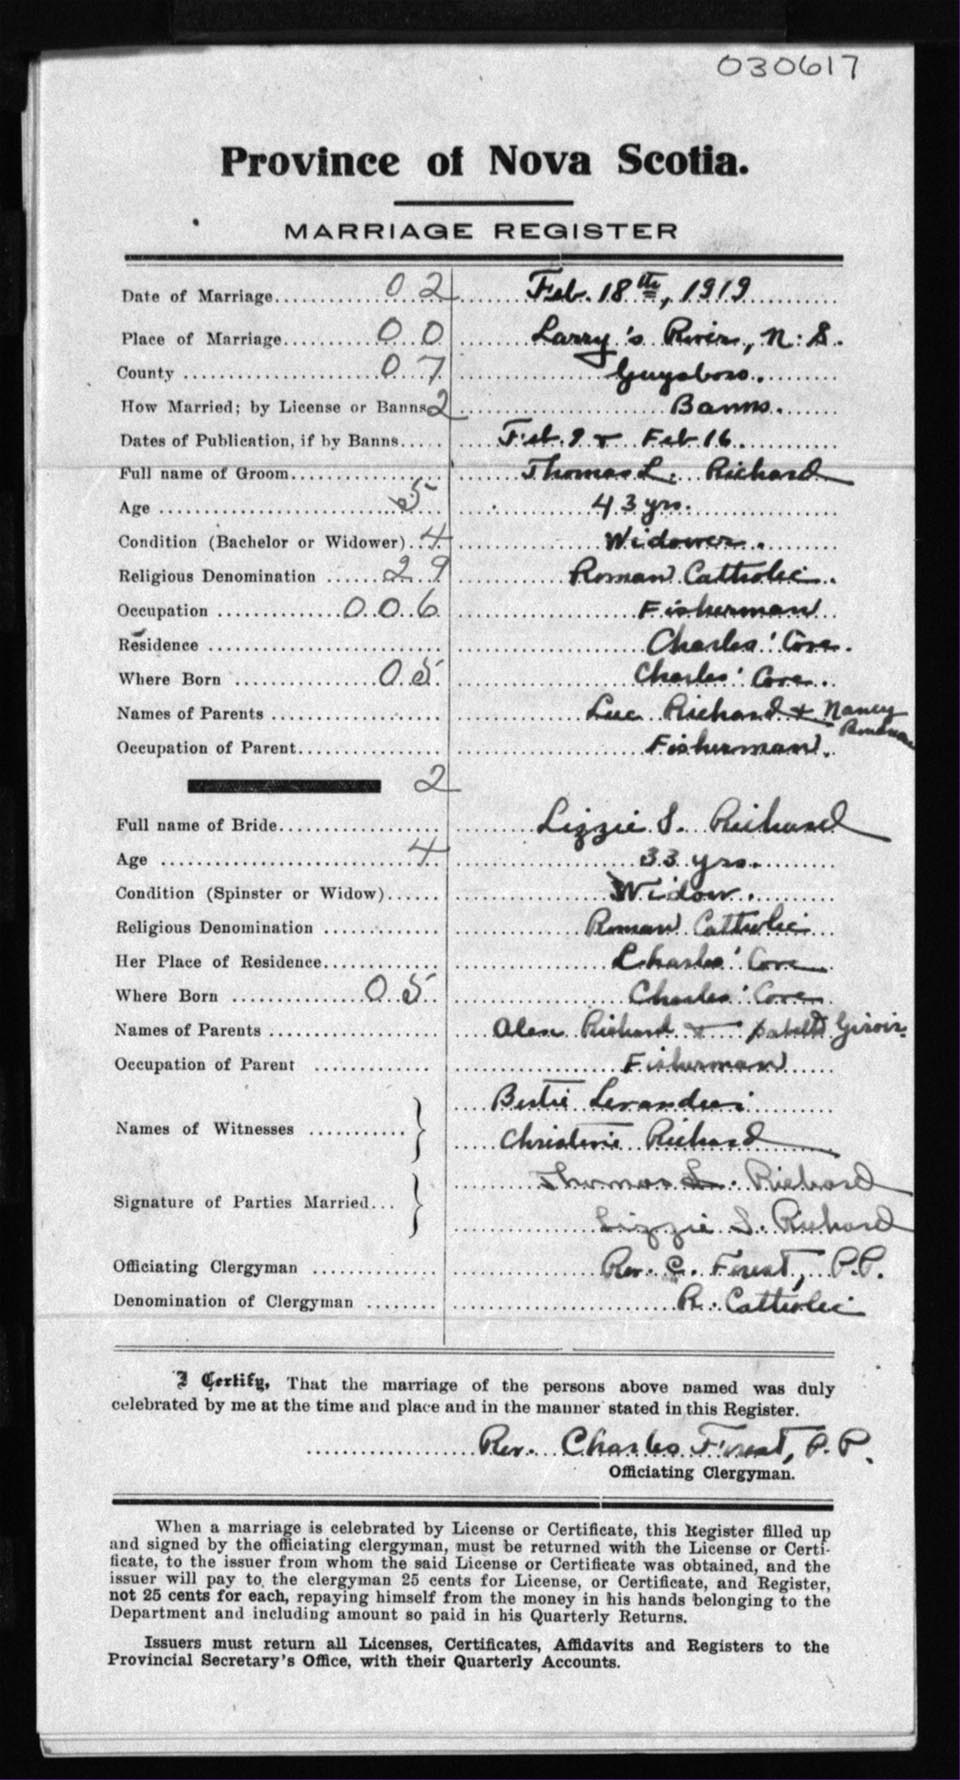 030617
Province of Nova Scotia.
MARRIAGE REGISTER
Date of Marriage 02 Feb. 18th, 1919
Place of Marriage 00 Larry's River, N. S.
County 07 Guysboro.
How Married; by License or Banns 2 Banns.
Dates of Publication, if by Banns Feb. 9 + Feb 16.
Full name of Groom Thomas L. Richard
Age 5 43 yrs.
Condition (Bachelor or Widower) 4 Widower.
Religious Denomination 29 Roman Catholic.
Occupation 006 Fisherman
Residence Charles' Cove.
Where Born 05 Charles' Cove.
Names of Parents Luc Richard + Nancy
Occupation of Parent Fisherman.
2
Full name of Bride Lizzie S. Richard
Age 4 33 yrs.
Condition (Spinster or Widow) Widow.
Religious Denomination Roman Catholic
Her Place of Residence Charles' Cove
Where Born 05 Charles' Cove
Names of Parents Alex Richard + Giroir.
Occupation of Parent Fisherman
Names of Witnesses
Christine Richard
Signature of Parties Married Thomas L. Richard
Lizzie S. Richard
Officiating Clergyman Rev. C. Forest, P.P.
Denomination of Clergyman R. Catholic
I Certify, That the marriage of the persons above named was duly
celebrated by me at the time and place and in the manner stated in this Register.
Rev. Charles Forest, P.P.
Officiating Clergyman.
When a marriage is celebrated by License or Certificate, this Register filled up
and signed by the officiating clergyman, must be returned with the License or Certi-
ficate, to the issuer from whom the said License or Certificate was obtained, and the
issuer will pay to the clergyman 25 cents for License, or Certificate, and Register,
not 25 cents for each, repaying himself from the money in his hands belonging to the
Department and including amount so paid in his Quarterly Returns.
Issuers must return all Licenses, Certificates, Affidavits and Registers to the
Provincial Secretary's Office, with their Quarterly Accounts.